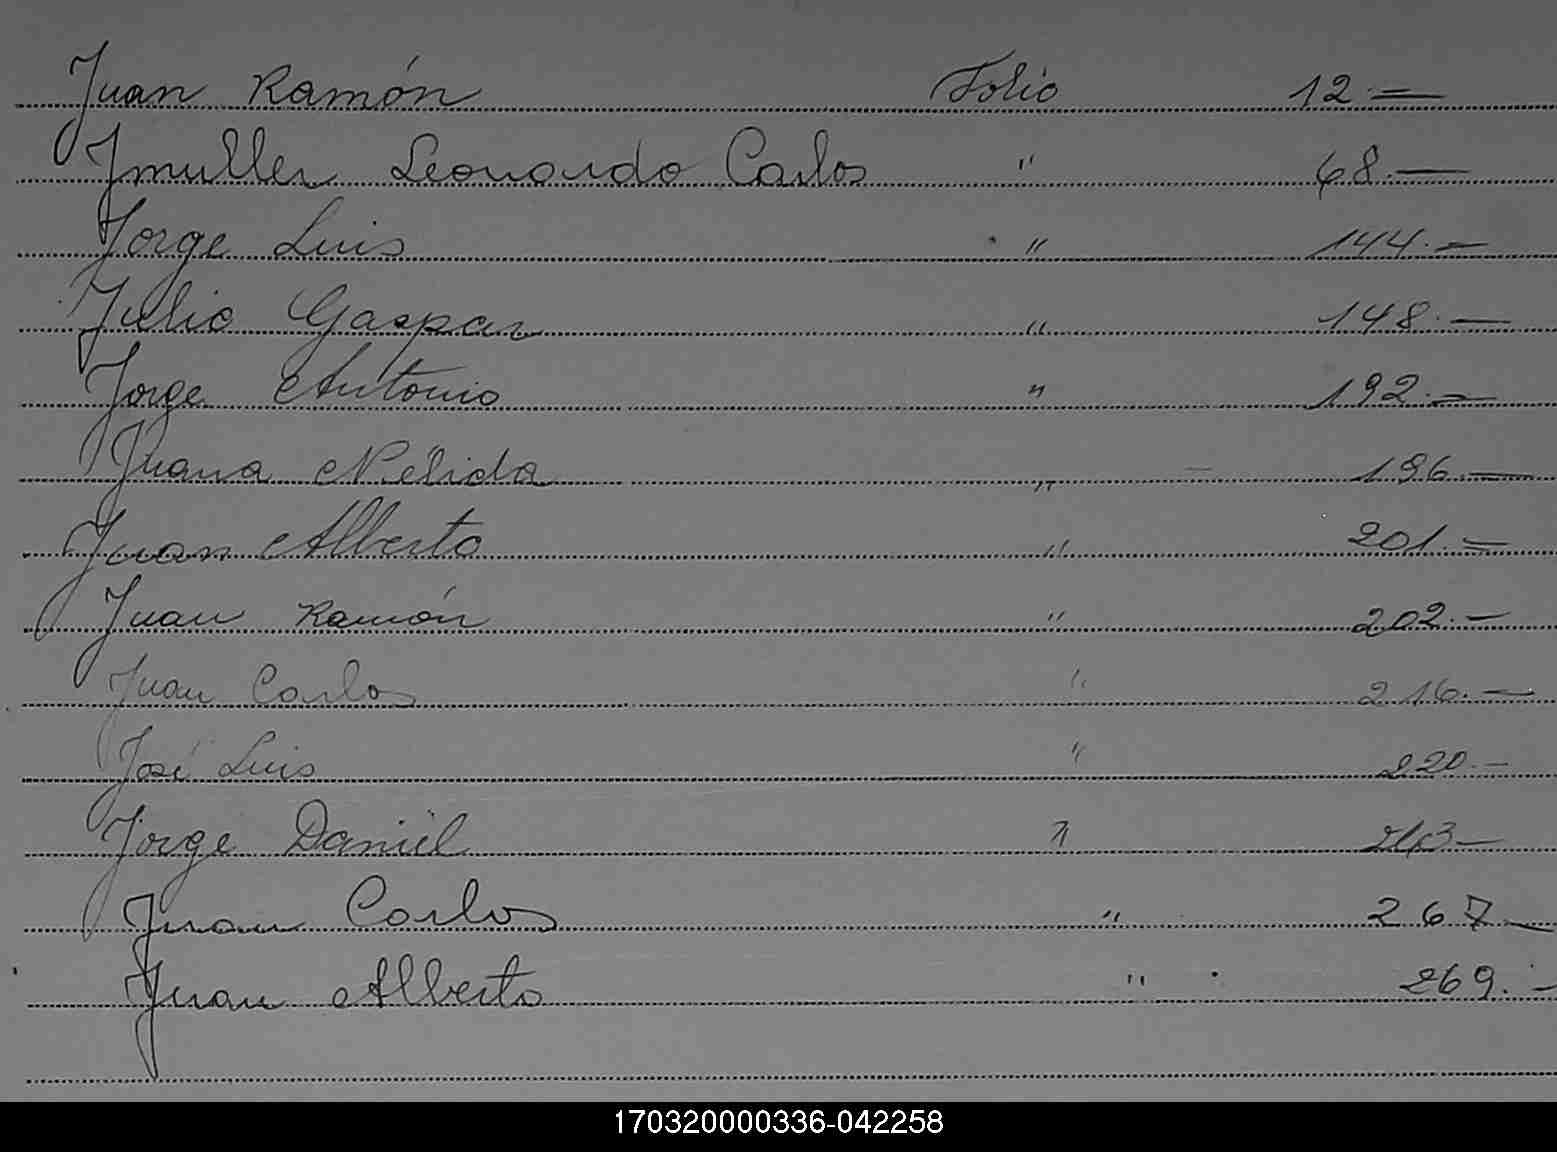 Juan Ramón Folio 12.=
Jmuller Leonardo Carlos " 68.—
Jorge Luis " 144.=
Julio Gaspar " 148.—
Jorge Antonio " 192.=
Juana Nélida " 196.—
Juan Alberto " 201.=
Juan Ramón " 202.—
Juan Carlos " 216.—
José Luis " 220.—
Jorge Daniel "
Juan Carlos " 267—
Juan Alberto " 269.—
170320000336-042258